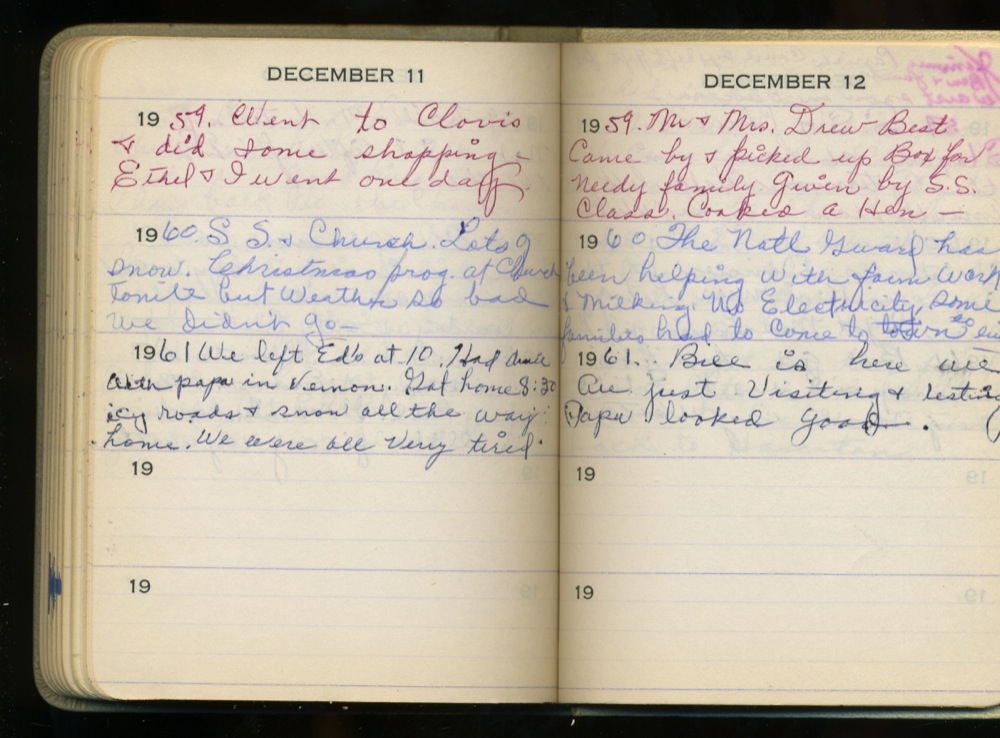 DECEMBER 11
1959. Went to Clovis
& did some shopping –
Ethel & I went one day.
1960. S S. & Church. Lots of
snow. Christmas prog. at Church
tonite but Weather so bad
we didn't go –
1961 We left Ed's at 10. Had
with papa in Vernon. Got home 8:30
icy roads & snow all the way
home. We were all very tired.
19
19
DECEMBER 12
1959. Mr & Mrs. Drew Best
Came by & picked up Box for
needy family given by S.S.
Class. Cooked a Hen –
1960 The Natl Guard has
been helping with farm work
& Milking. No Electricity, some
families had to come to town to
1961. Bill is here we
are just Visiting & resting
Papa looked good.
19
19